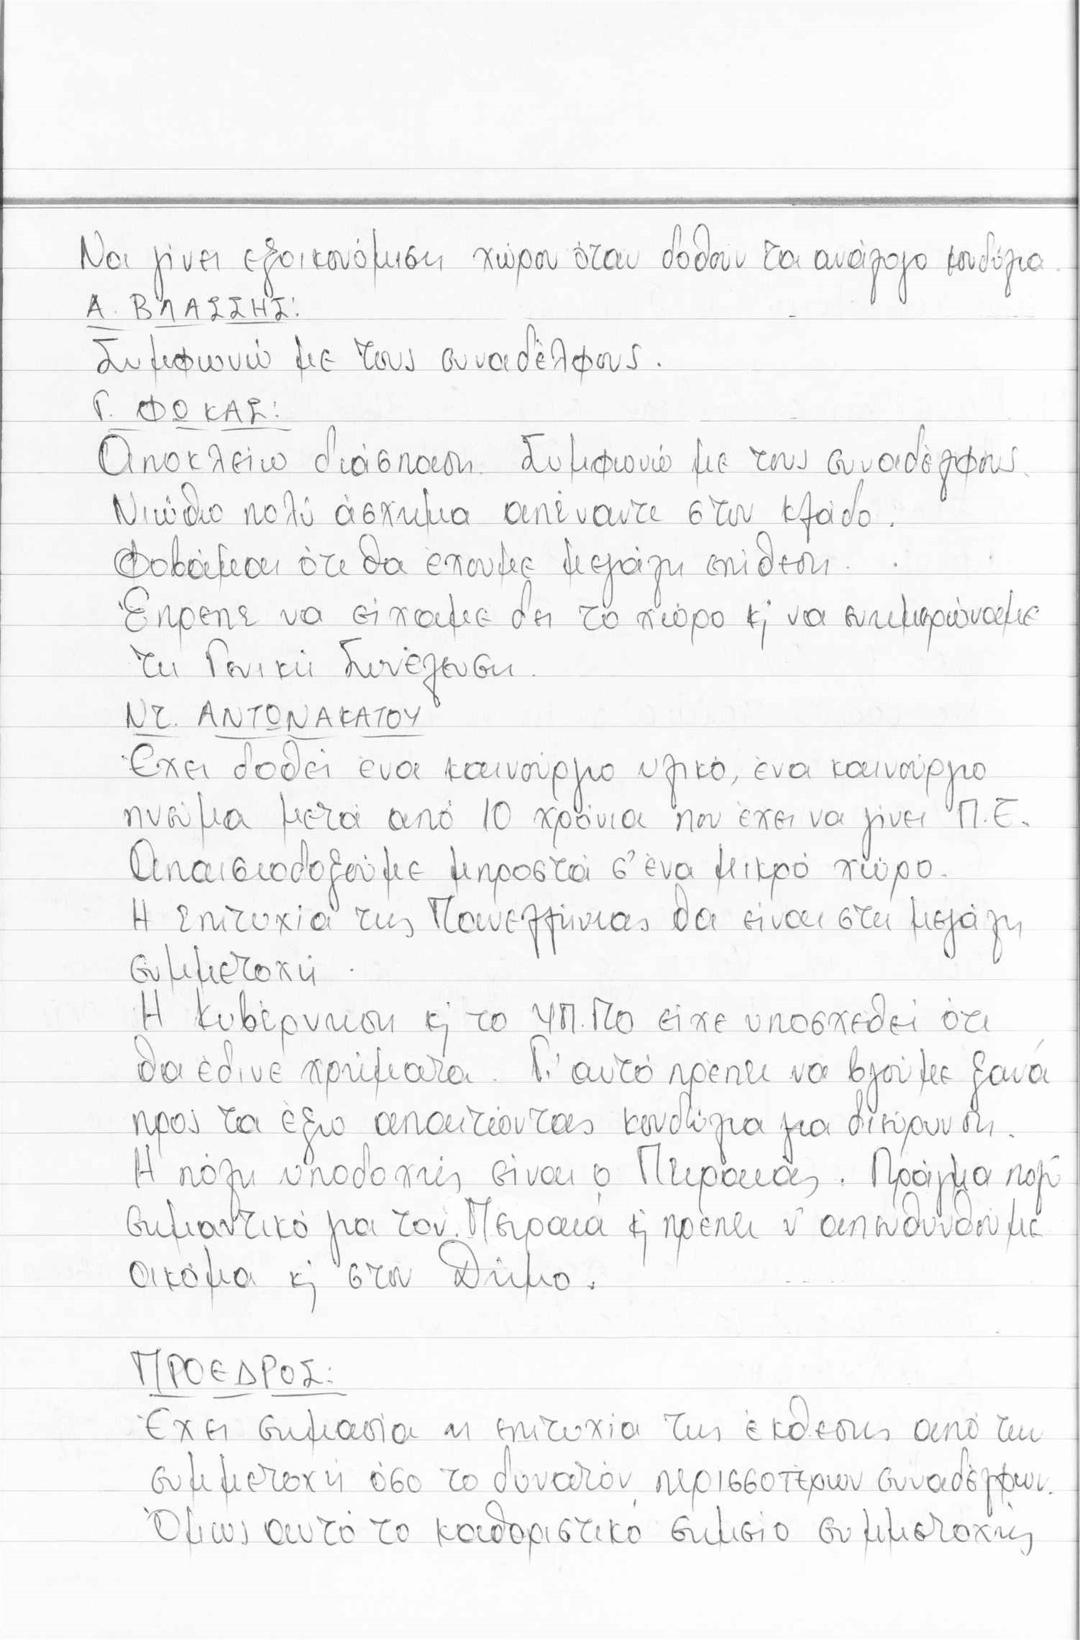 Να γίνει εξοικονόμιση χώρου όταν δοθούν τα ανάλογα κονδύλια.
Α. ΒΛΑΣΣΗΣ:
Συμφωνώ με τους συναδέλφους.
Γ. ΦΩΚΑΣ:
Αποκλείω διάσπαση. Συμφωνώ με τους συναδέλφους.
Νιώθω πολύ άσχημα απέναντι στον κλάδο.
Φοβάμαι ότι θα έχουμε μεγάλη επίθεση.
Έπρεπε να είχαμε δει το χώρο κ' να ενημερώναμε
τη Γενική Συνέλευση.
ΝΤ. ΑΝΤΩΝΑΚΑΤΟΥ
Έχει δοθεί ένα καινούργιο υλικό, ένα καινούργιο
πνεύμα μετά από 10 χρόνια που έχει να γίνει Π.Ε.
Απαισιοδοξούμε μπροστά σ' ένα μικρό χώρο.
Η επιτυχία της Πανελλήνιας θα είναι στη μεγάλη
συμμετοχή.
Η Κυβέρνηση κ' το ΥΠ.ΠΟ είχε υποσχεθεί ότι
θα έδινε χρήματα. Γι' αυτό πρέπει να βγούμε ξανά
προς τα έξω απαιτώντας κονδύλια για διεύρυνση.
Η πόλη υποδοχής είναι ο Πειραιάς. Πράγμα πολύ
σημαντικό για τον Πειραιά κ' πρέπει ν' απευθυνθούμε
ακόμα κ' στον Δήμο.
ΠΡΟΕΔΡΟΣ:
Έχει σημασία η επιτυχία της έκθεσης από τη
συμμετοχή όσο το δυνατόν περισσοτέρων συναδέλφων.
Όμως αυτό το καθοριστικό σημείο συμμετοχής